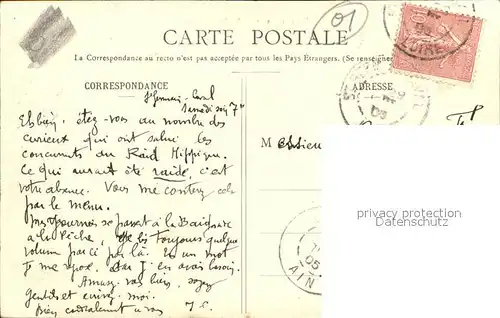 01
CARTE POSTALE
La Correspondance au recto n'est pas acceptée par tous les Pays Étrangers. (Se renseigner
CORRESPONDANCE
ADRESSE
St Germain - Laval
samedi soir 7h
Eh bien, étez-vous au nombre des
curieux qui ont salué les
concurrents du Raid Hippique.
Ce qui aurait été raide, c'est
votre absence. Vous me conterez cela
par le menu.
Mes journées se passent à la Baignade
à la Pêche, toujours quelque
volume par ci par là. En un mot
je me repose. j'en avais besoin.
Amusez-vous bien, soyez
gentils et écrivez-moi.
Bien cordialement à vous J.C.
Messieu
privacy protection
Datenschutz
LOIRE
AIN
05